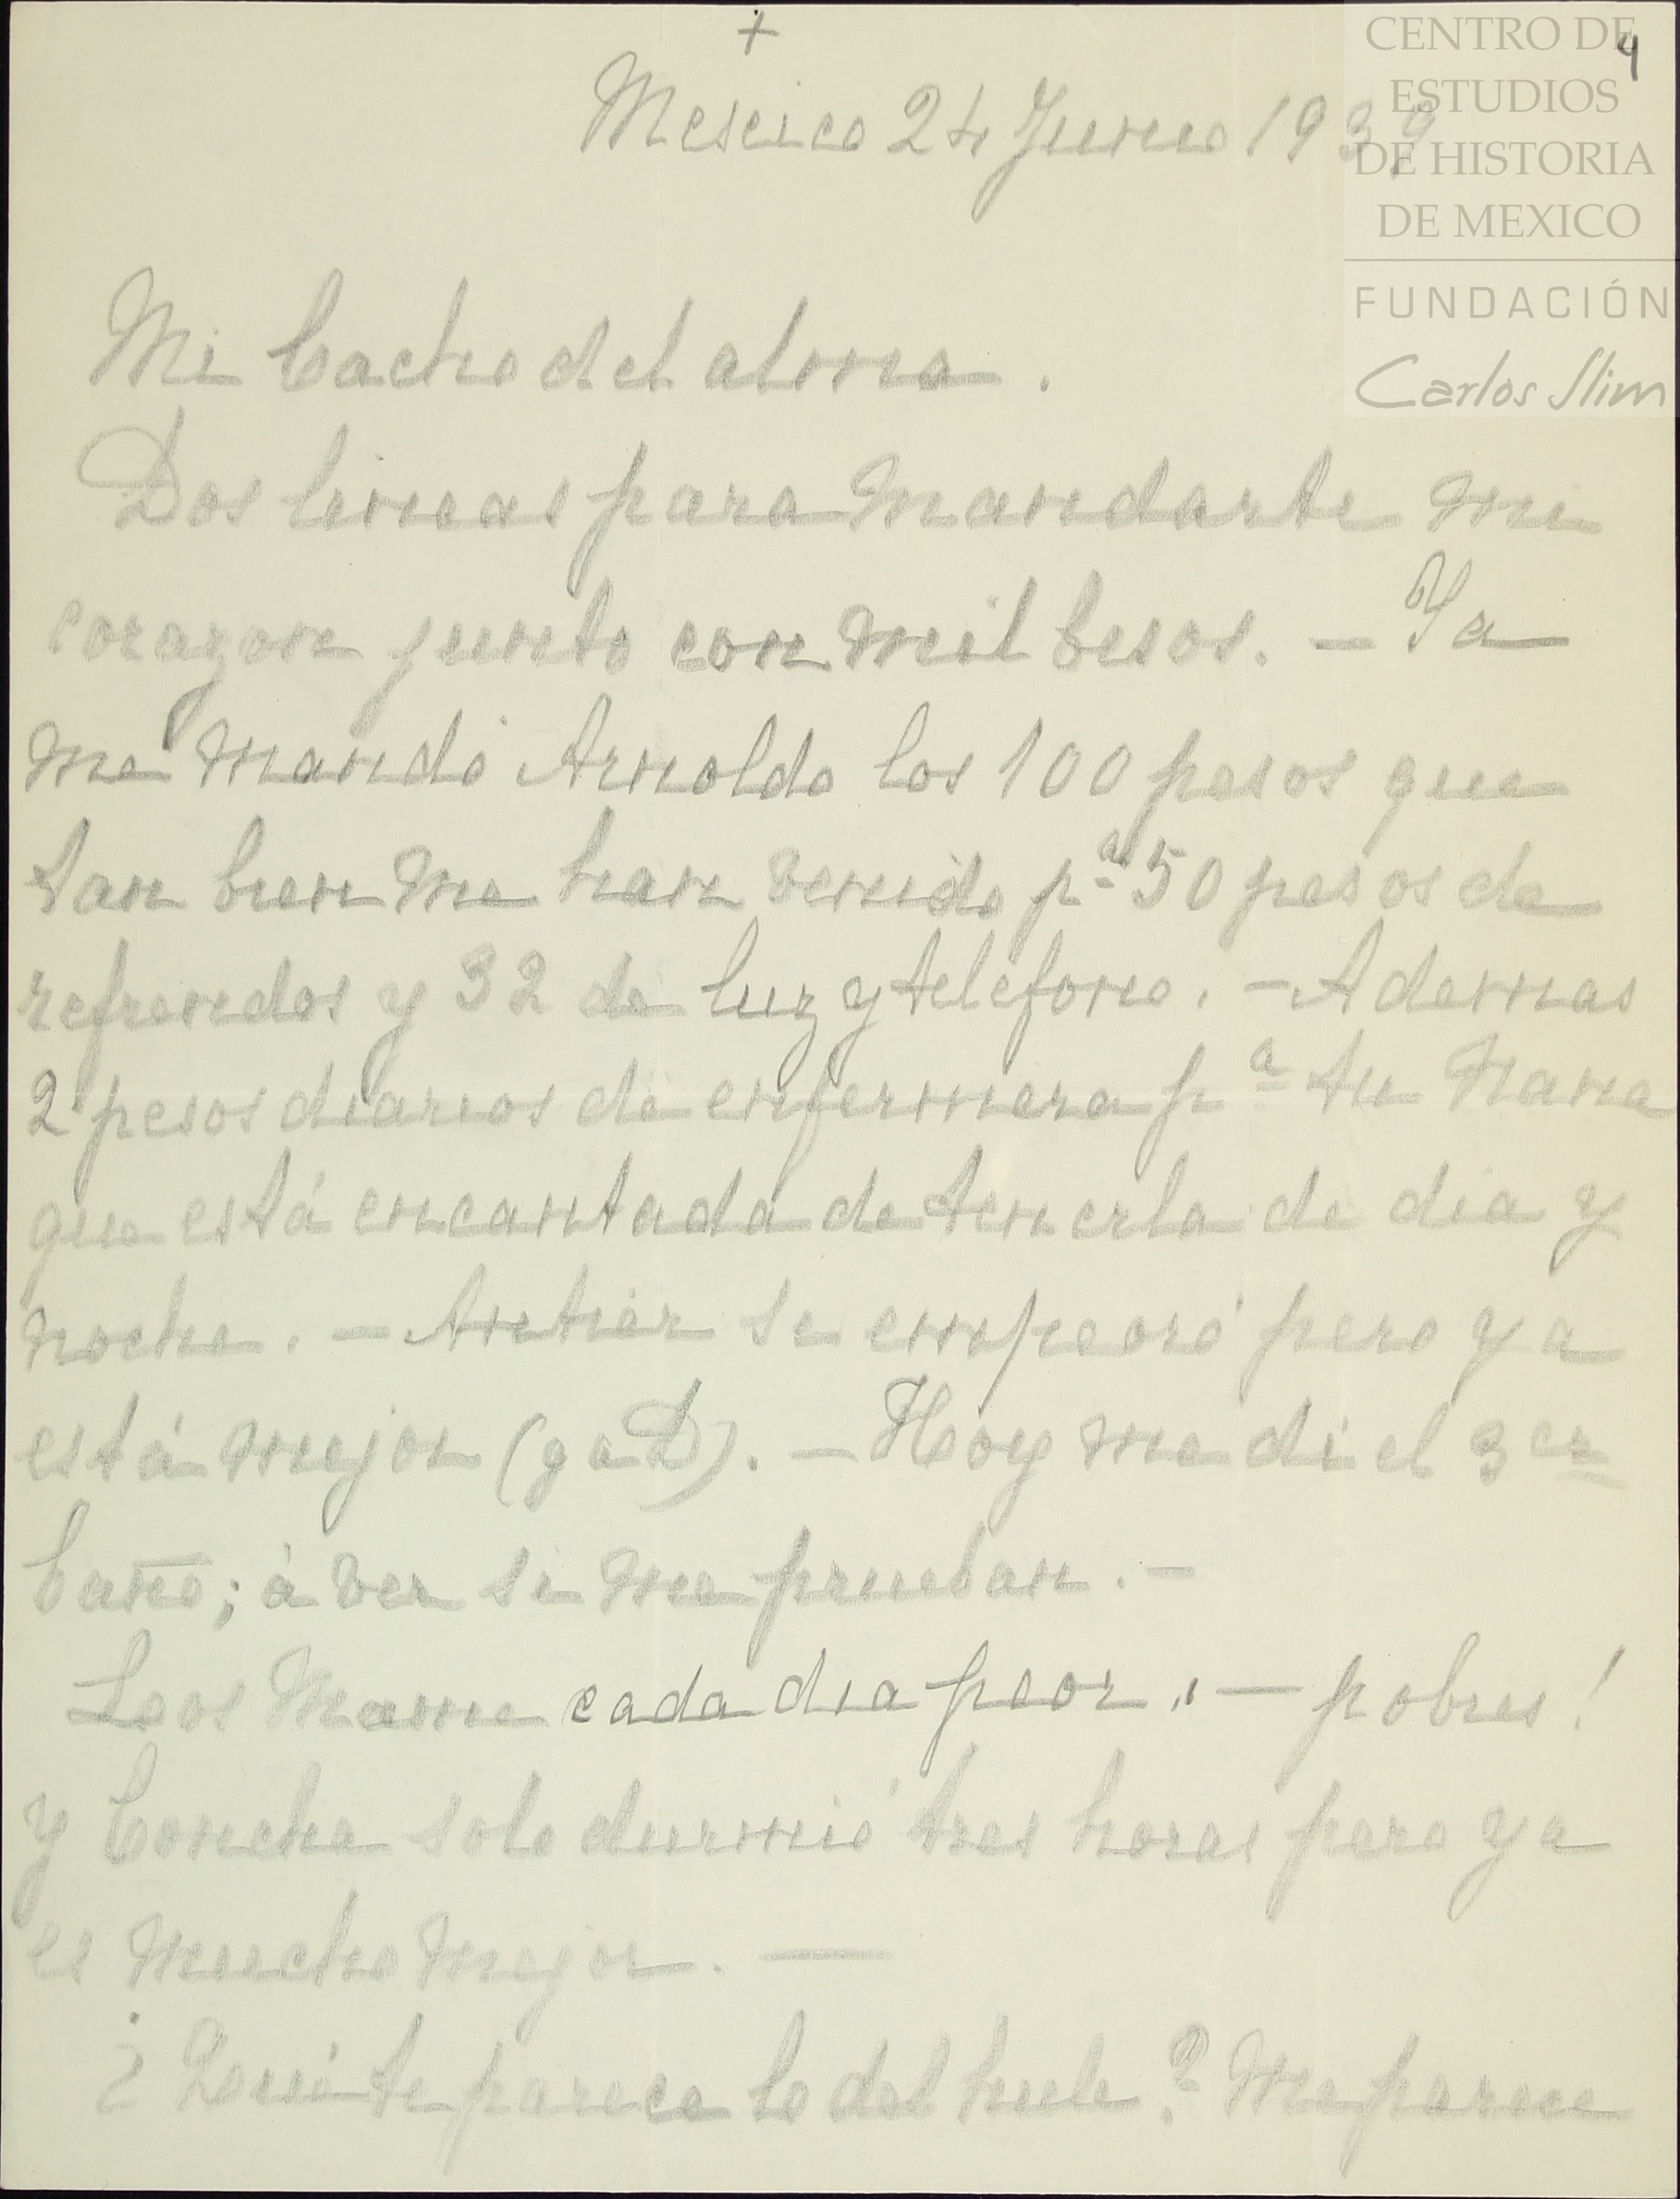 +
4
CENTRO DE
ESTUDIOS
DE HISTORIA
DE MEXICO
FUNDACIÓN
Carlos Slim
Mexico 24 Junio 1939
Mi Cacho del alma.
Dos lineas para mandarte mi
corazon junto con mil besos. — Ya
me mandó Arnoldo los 100 pesos que
tan bien me han venido pª 50 pesos de
refrendos y 32 de luz y telefono. — Ademas
2 pesos diarios de enfermera pª tu Nana
que está encantada de tenerla de dia y
noche. — Antier se empeoró pero ya
está mejor (g a D). — Hoy me di el 3er
baño; á ver si me prueban. —
Los cada dia peor. — pobres!
y Concha solo durmió tres horas pero ya
es mucho mejor. —
¿Qué te parece lo del hule? Me parece